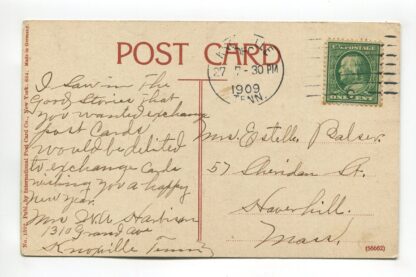 POST CARD
No. 1597. Publ. by International Post Card Co., New York, City. Made in Germany.
KNOXVILLE
DEC
27 7-30 PM
1909
TENN.
U.S. POSTAGE
ONE CENT
I Saw in The
Good Stories that
you wanted exchange
post Cards
would be delited
to exchange Cards
wishing you a happy
New year.
Mrs Harrison
1310 Grand Ave
Knoxville Tenn
Mrs. Estelle Palser.
57 Sheridan St.
Haverhill.
Mass.
(56662)